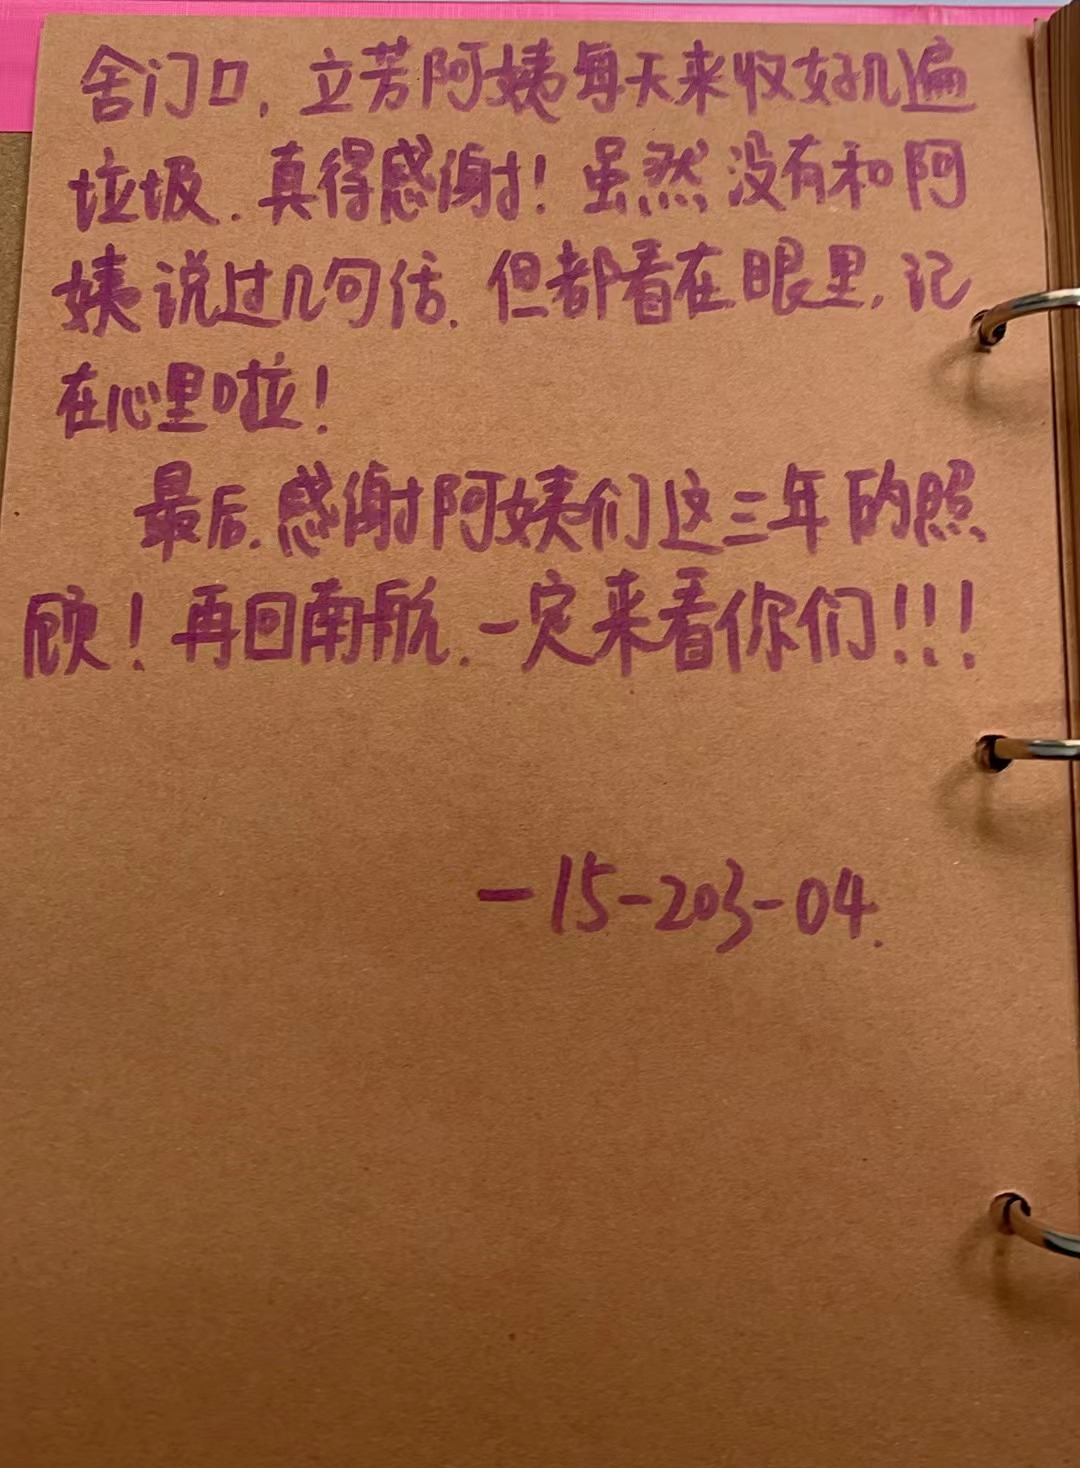 舍门口,立芳阿姨每天来收好几遍
垃圾.真得感谢!虽然没有和阿
姨说过几句话.但都看在眼里,记
在心里啦!
最后.感谢阿姨们这三年的照
顾!再回南航.一定来看你们!!!
-15-203-04.